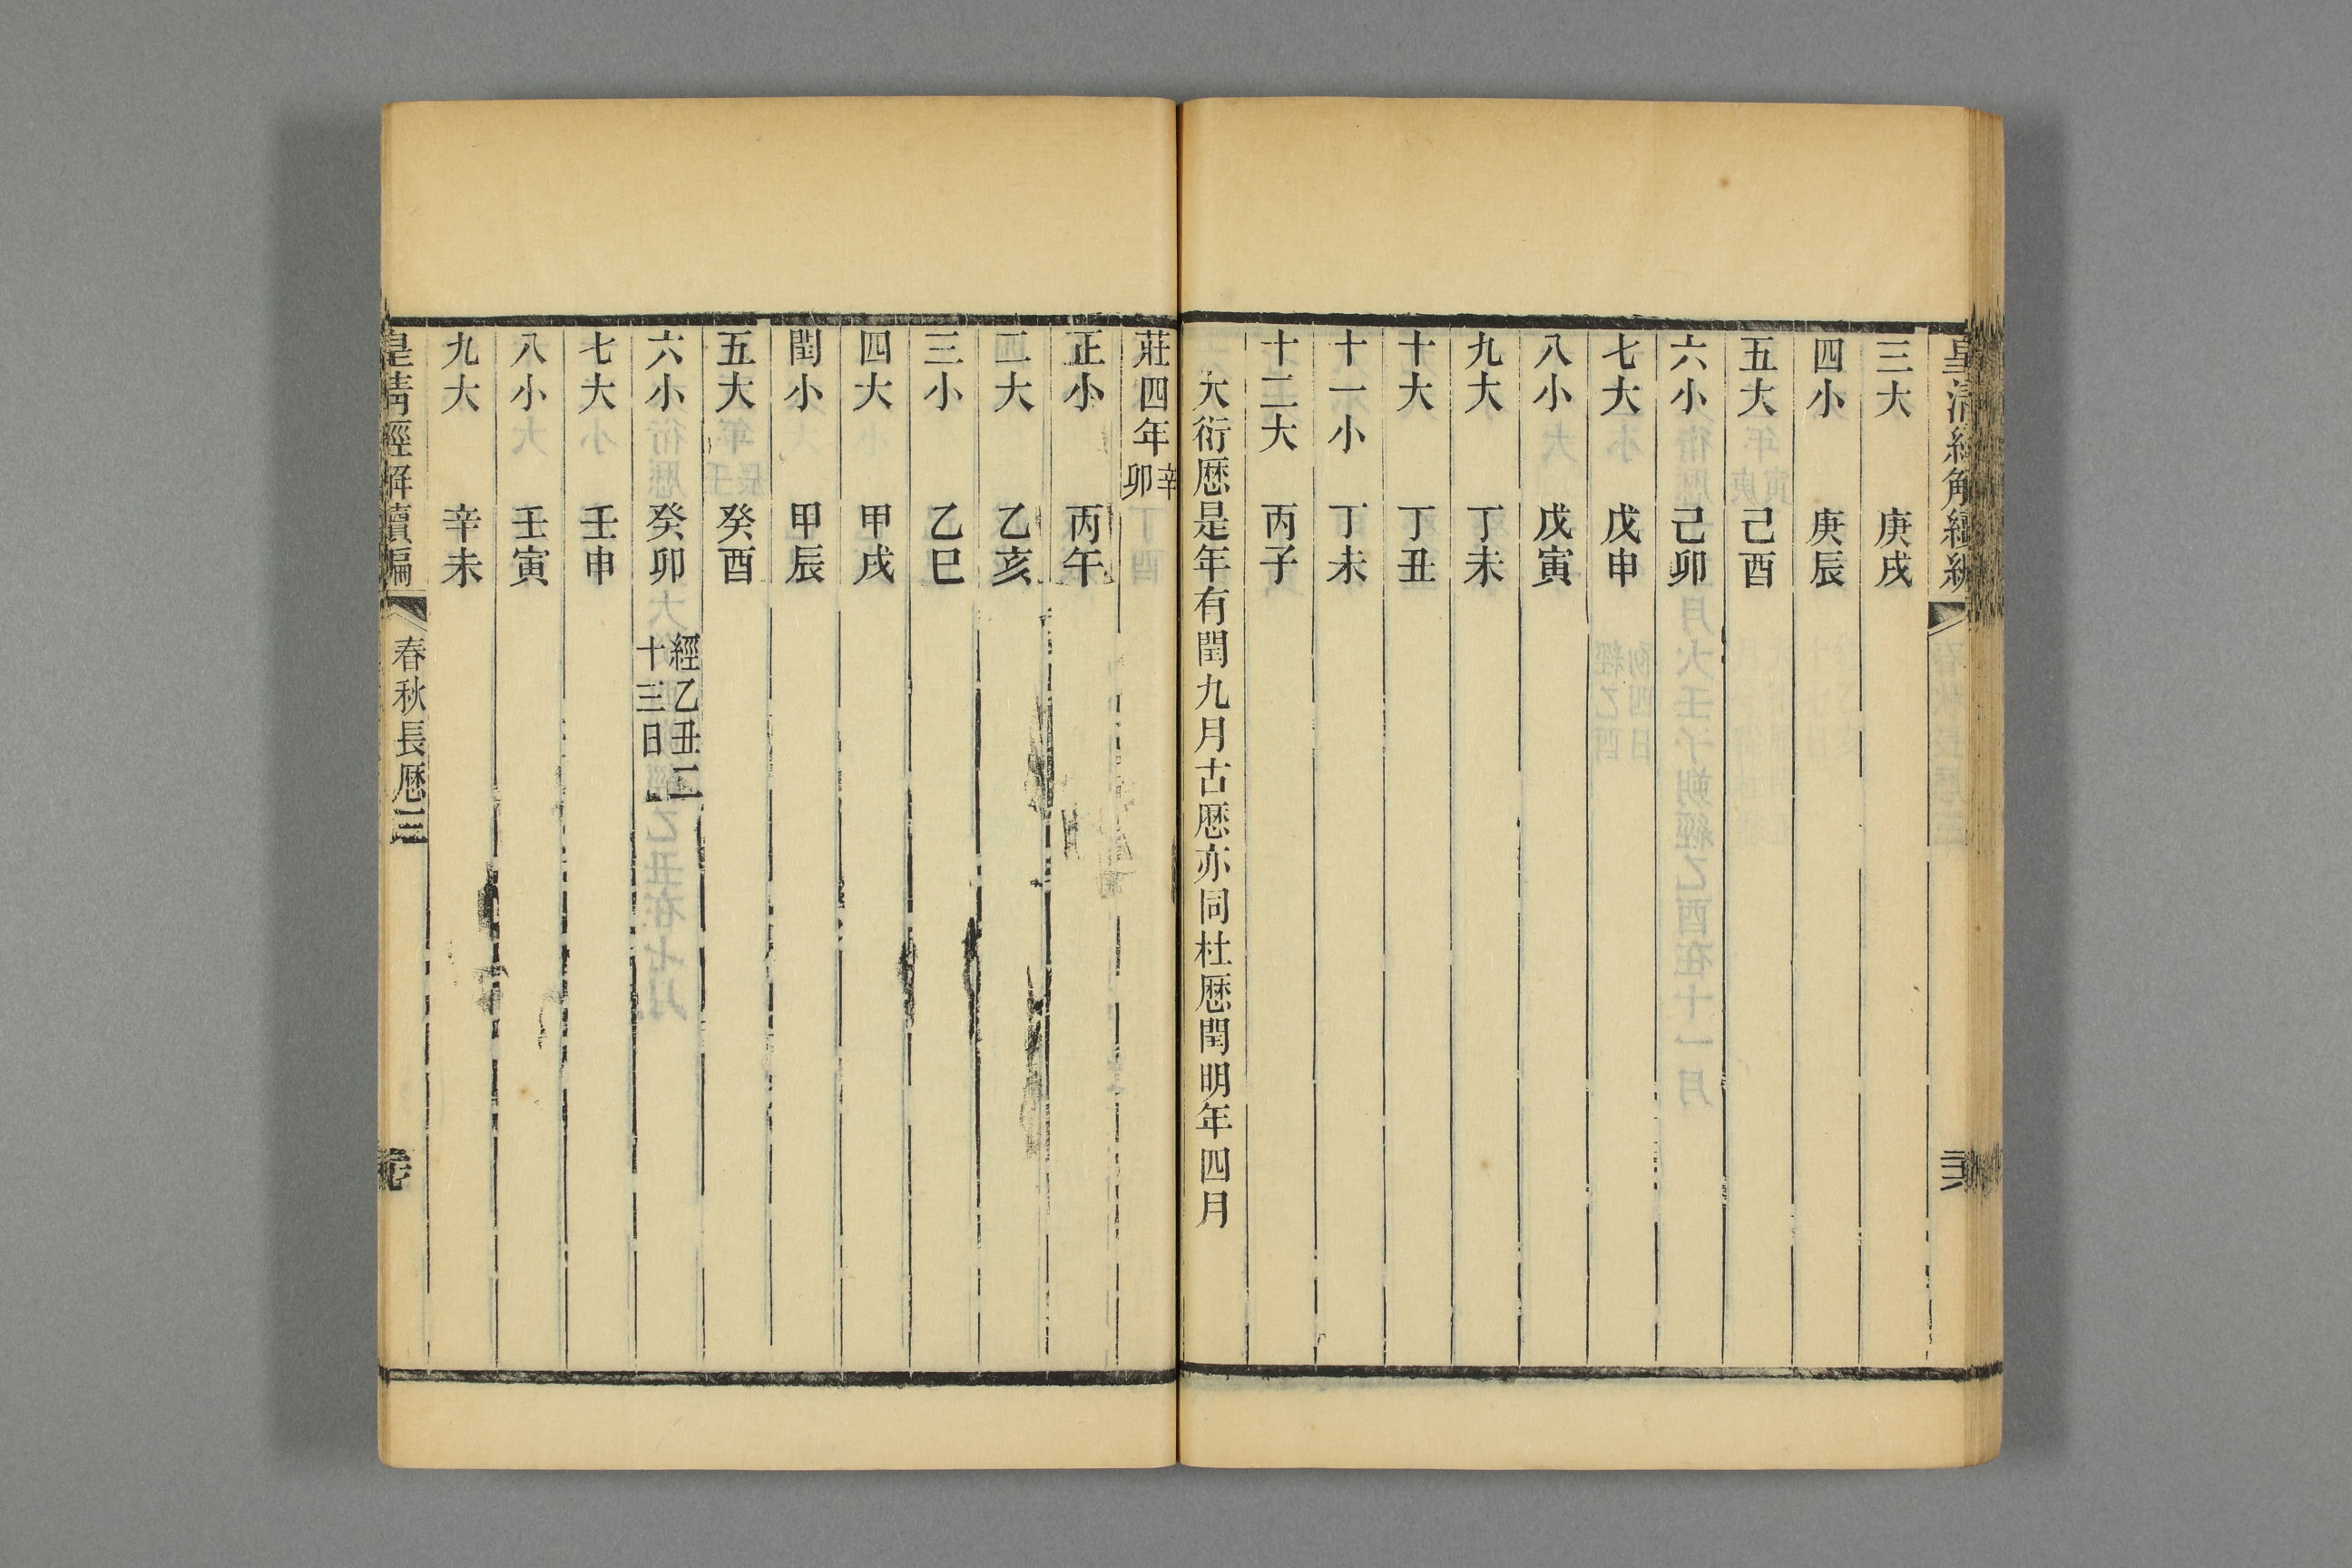 皇清經解續編
三大　庚戌
四小　庚辰
五大　己酉
六小　己卯
七大　戊申
八小　戊寅
九大　丁未
十大　丁丑
十一小　丁未
十二大　丙子
大衍厯是年有閏九月古厯亦同杜厯閏明年四月
莊四年辛卯
正小　丙午
二大　乙亥
三小　乙巳
四大　甲戌
閏小　甲辰
五大　癸酉
六小　癸卯　經乙丑二十三日
七大　壬申
八小　壬寅
九大　辛未
皇清經解續編　春秋長厯三